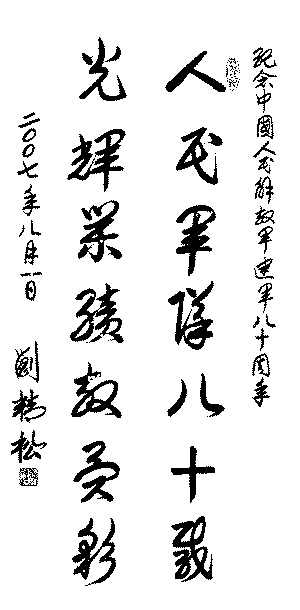 紀念中國人民解放軍建軍八十周年
人民軍隊八十載
光輝業績放異彩
二〇〇七年八月一日
劉精松